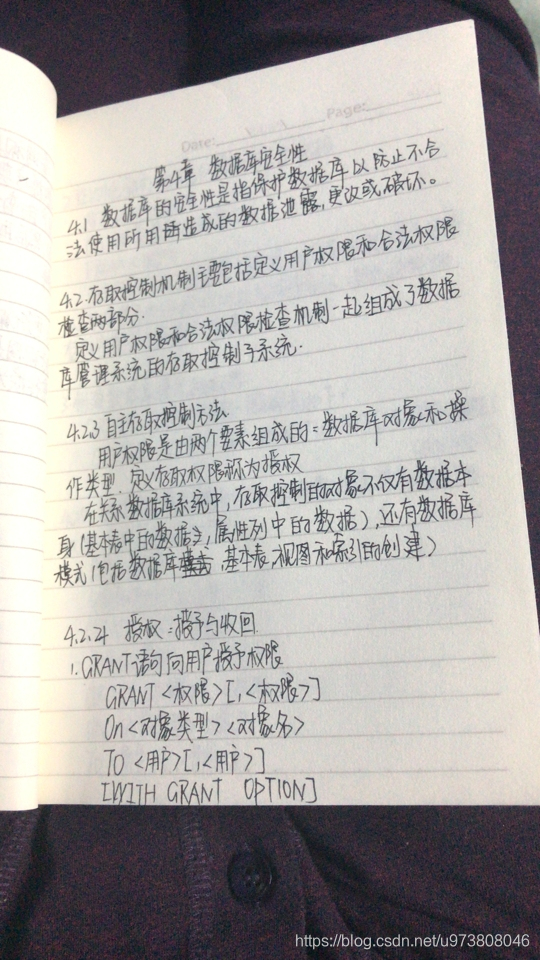 Date:
Page:
第4章 数据库安全性
4.1 数据库的安全性是指保护数据库以防止不合
法使用所造成的数据泄露,更改或破坏。
4.2.存取控制机制主要包括定义用户权限和合法权限
检查两部分.
定义用户权限和合法权限检查机制一起组成了数据
库管理系统的存取控制子系统.
4.2.3 自主存取控制方法
用户权限是由两个要素组成的:数据库对象和操
作类型 定义存取权限称为授权
在关系数据库系统中,存取控制的对象不仅有数据本
身(基本表中的数据,属性列中的数据),还有数据库
模式(包括数据库,基本表,视图和索引的创建)
4.2.4 授权:授予与收回
1.GRANT语句向用户授予权限
GRANT <权限>[,<权限>]
On <对象类型> <对象名>
To <用户>[,<用户>]
[WITH GRANT OPTION]
https://blog.csdn.net/u973808046